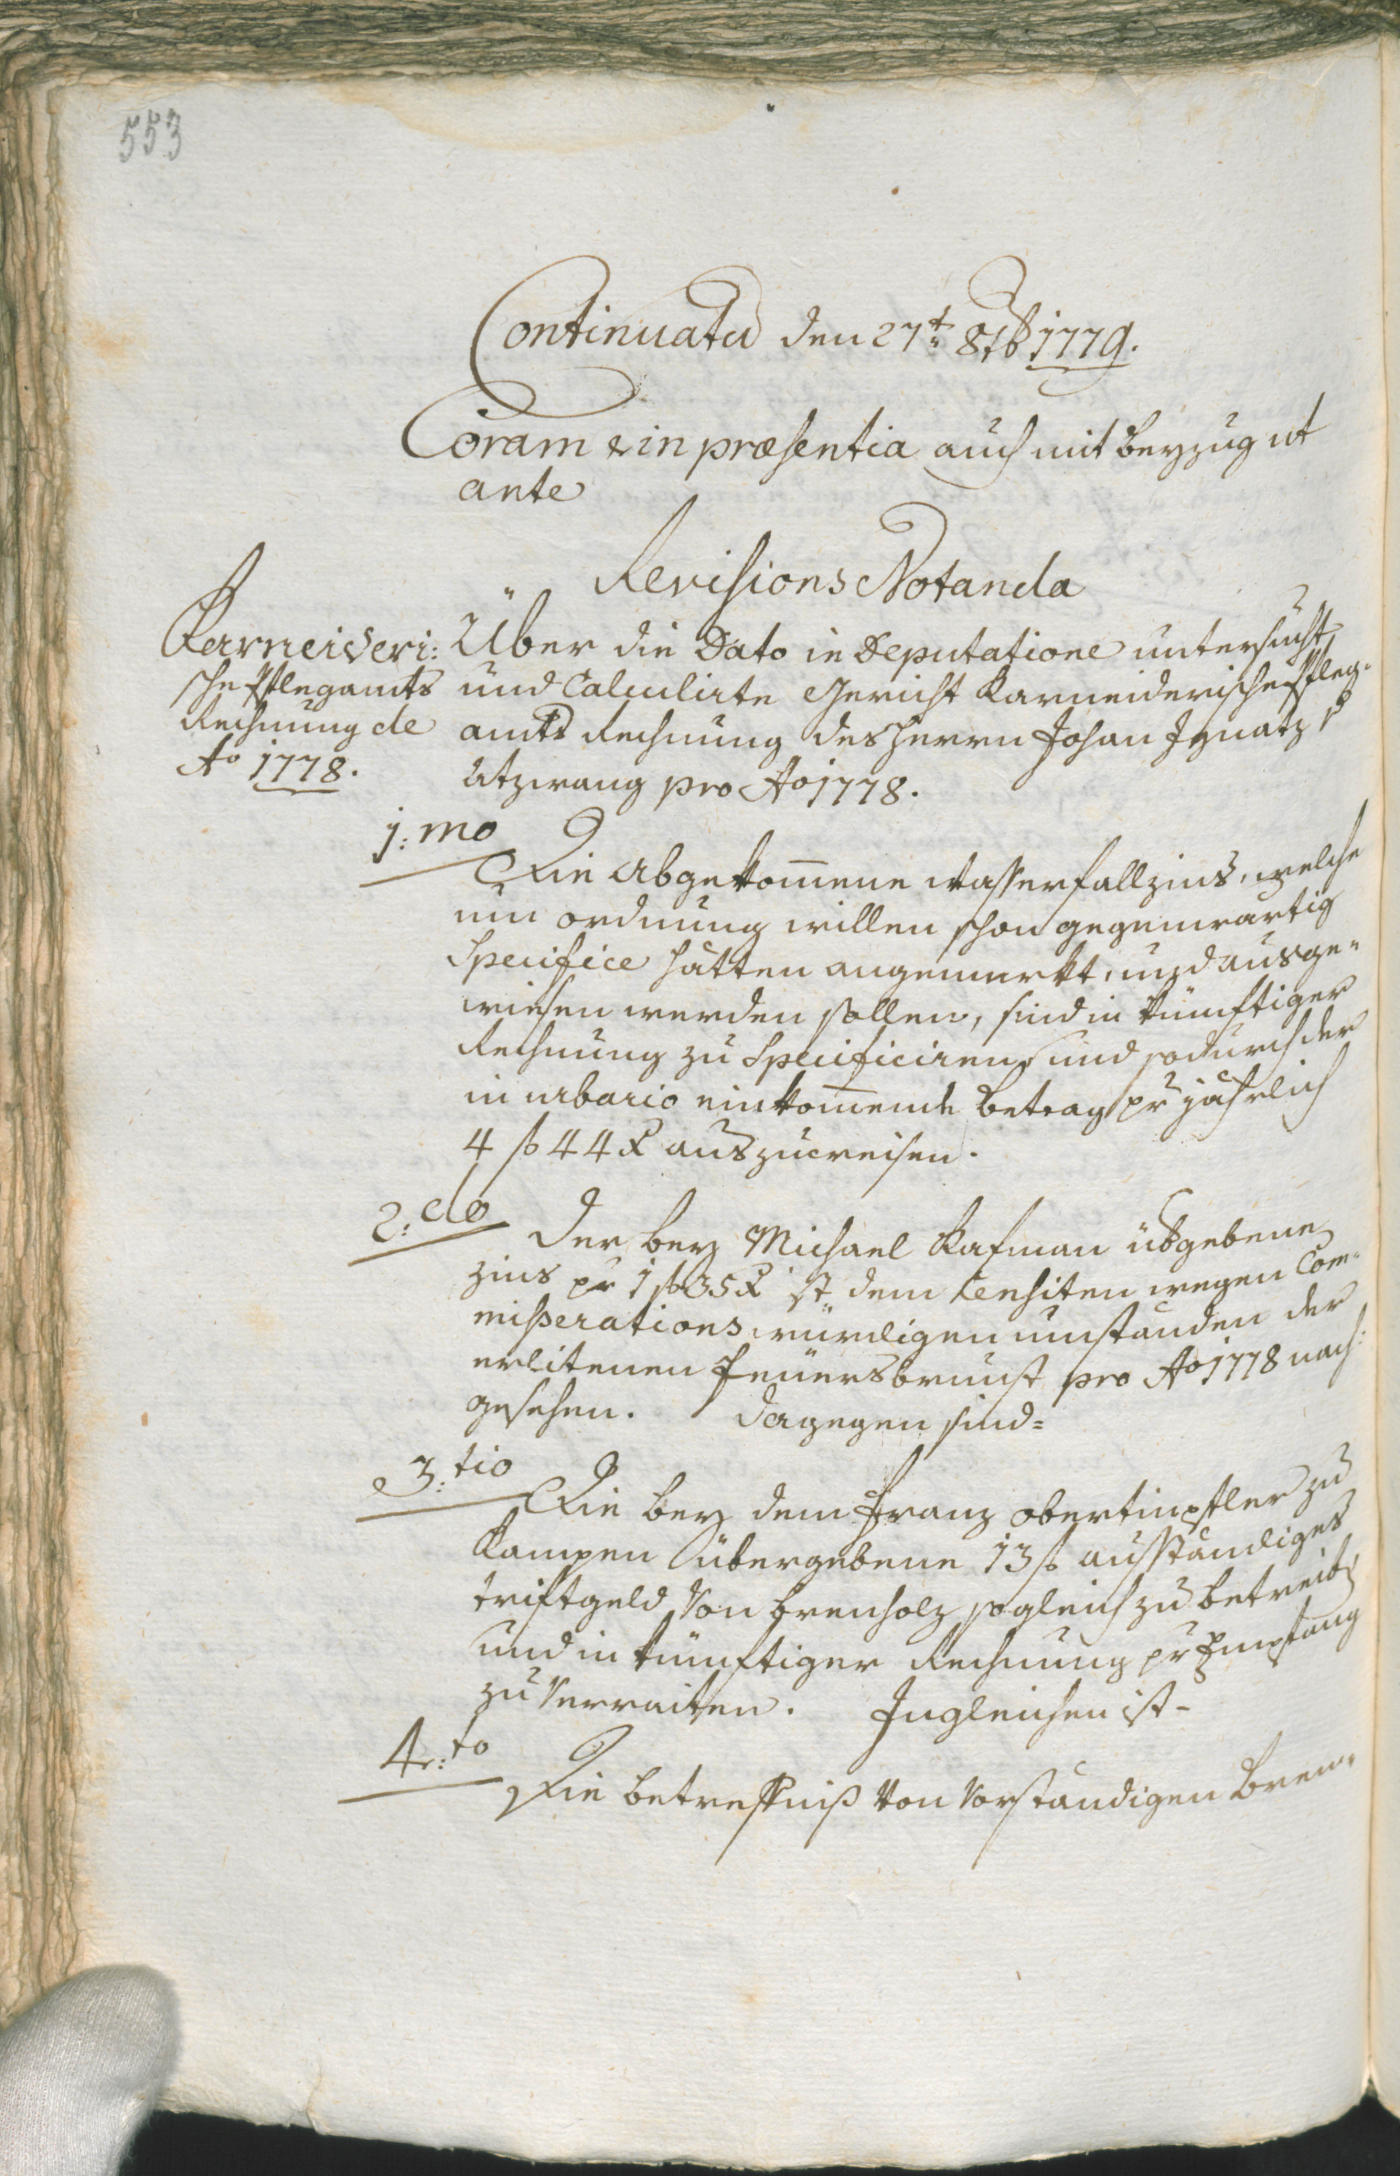 553
Continuatū den 27t 8tb 1779.
Coram & in præsentia auch mit beyzug ut
ante
Revisions Notanda
Karneideri:
sche Pflegamts
Rechnung de
Ao 1778.
Über die Dato in Deputatione untersucht
und Calculirte Gericht Karneiderische Pfleg-
amts Rechnung des Herrn Johan Ignatz v
Atzwang pro Ao 1778.
1:mo
Die Abgekom̄ene wasserfallzins, welche
um ordnung willen schon gegenwärtig
Specifice hätten angemerkt, und ausge-
wiesen werden sollen, sind in künftiger
Rechnung zu Specificiren, und sodurch der
in urbario einkom̄ende betrag pr jährlich
4 f 44 x auszuweisen.
2:do
Der bey Michael Kafman übgebene
zins pr 1 f 35 x ist dem Censiten wegen Com-
miserations würdigen umständen der
erlitenen Feüersbrunst pro Ao 1778 nach:
gesehen. Dagegen sind=
3:tio
Die bey dem Franz obertimpfler zu
Kampen übergebene 13 f ausständiges
triftgeld von brenholz sogleich zu betreibe
und in künftiger Rechnung pr Empfang
zu Verraiten. Ingleichen ist-
4:to
Die betreffniß von Vorständigen Bren-